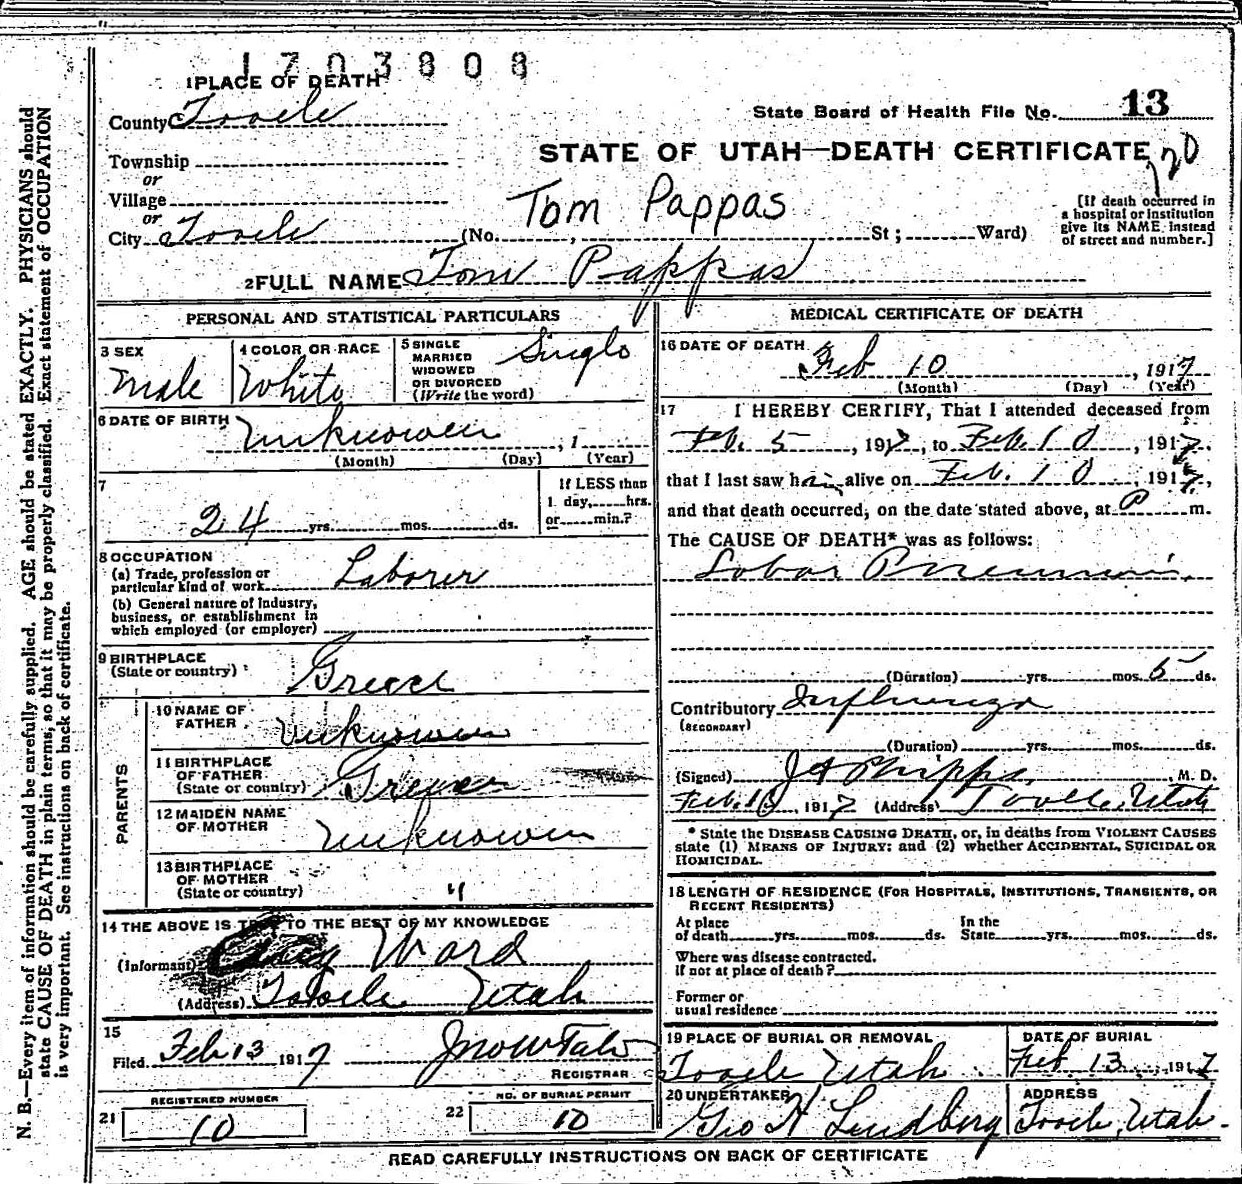 1703808
1 PLACE OF DEATH
County Tooele
State Board of Health File No. 13
Township
STATE OF UTAH—DEATH CERTIFICATE 120
or
Village
Tom Pappas
or
City Tooele (No. , St ; Ward)
[If death occurred in
a hospital or institution
give its NAME instead
of street and number.]
2 FULL NAME Tom Pappas
PERSONAL AND STATISTICAL PARTICULARS
3 SEX
Male
4 COLOR OR RACE
White
5 SINGLE
MARRIED
WIDOWED
OR DIVORCED
(Write the word)
Single
6 DATE OF BIRTH Unknown , 1
(Month) (Day) (Year)
7
24 yrs. mos. ds.
If LESS than
1 day, hrs.
or min.?
8 OCCUPATION
(a) Trade, profession or
particular kind of work Laborer
(b) General nature of industry,
business, or establishment in
which employed (or employer)
9 BIRTHPLACE
(State or country) Greece
PARENTS
10 NAME OF
FATHER Unknown
11 BIRTHPLACE
OF FATHER
(State or country) Greece
12 MAIDEN NAME
OF MOTHER Unknown
13 BIRTHPLACE
OF MOTHER
(State or country) "
14 THE ABOVE IS TRUE TO THE BEST OF MY KNOWLEDGE
(Informant) Ward
(Address) Tooele Utah
15
Filed Feb 13 1917
REGISTRAR
REGISTERED NUMBER
21 10
NO. OF BURIAL PERMIT
22 10
MEDICAL CERTIFICATE OF DEATH
16 DATE OF DEATH
Feb 10 , 1917
(Month) (Day) (Year)
17 I HEREBY CERTIFY, That I attended deceased from
Feb. 5 , 1917, to Feb. 10 , 1917,
that I last saw him alive on Feb. 10 , 1917,
and that death occurred, on the date stated above, at P m.
The CAUSE OF DEATH* was as follows:
Lobar Pneumonia
(Duration) yrs. mos. 5 ds.
Contributory Influenza
(SECONDARY)
(Duration) yrs. mos. ds.
(Signed) J A Phipps , M. D.
Feb. 10 , 1917 (Address) Tooele, Utah
* State the DISEASE CAUSING DEATH, or, in deaths from VIOLENT CAUSES
state (1) MEANS OF INJURY; and (2) whether ACCIDENTAL, SUICIDAL OR
HOMICIDAL.
18 LENGTH OF RESIDENCE (FOR HOSPITALS, INSTITUTIONS, TRANSIENTS, OR
RECENT RESIDENTS)
At place
of death yrs. mos. ds.
In the
State yrs. mos. ds.
Where was disease contracted,
if not at place of death?
Former or
usual residence
19 PLACE OF BURIAL OR REMOVAL
Tooele Utah
DATE OF BURIAL
Feb. 13 , 1917
20 UNDERTAKER
Geo H Lundberg
ADDRESS
Tooele, Utah.
READ CAREFULLY INSTRUCTIONS ON BACK OF CERTIFICATE
N. B.—Every item of information should be carefully supplied. AGE should be stated EXACTLY. PHYSICIANS should
state CAUSE OF DEATH in plain terms, so that it may be properly classified. Exact statement of OCCUPATION
is very important. See instructions on back of certificate.